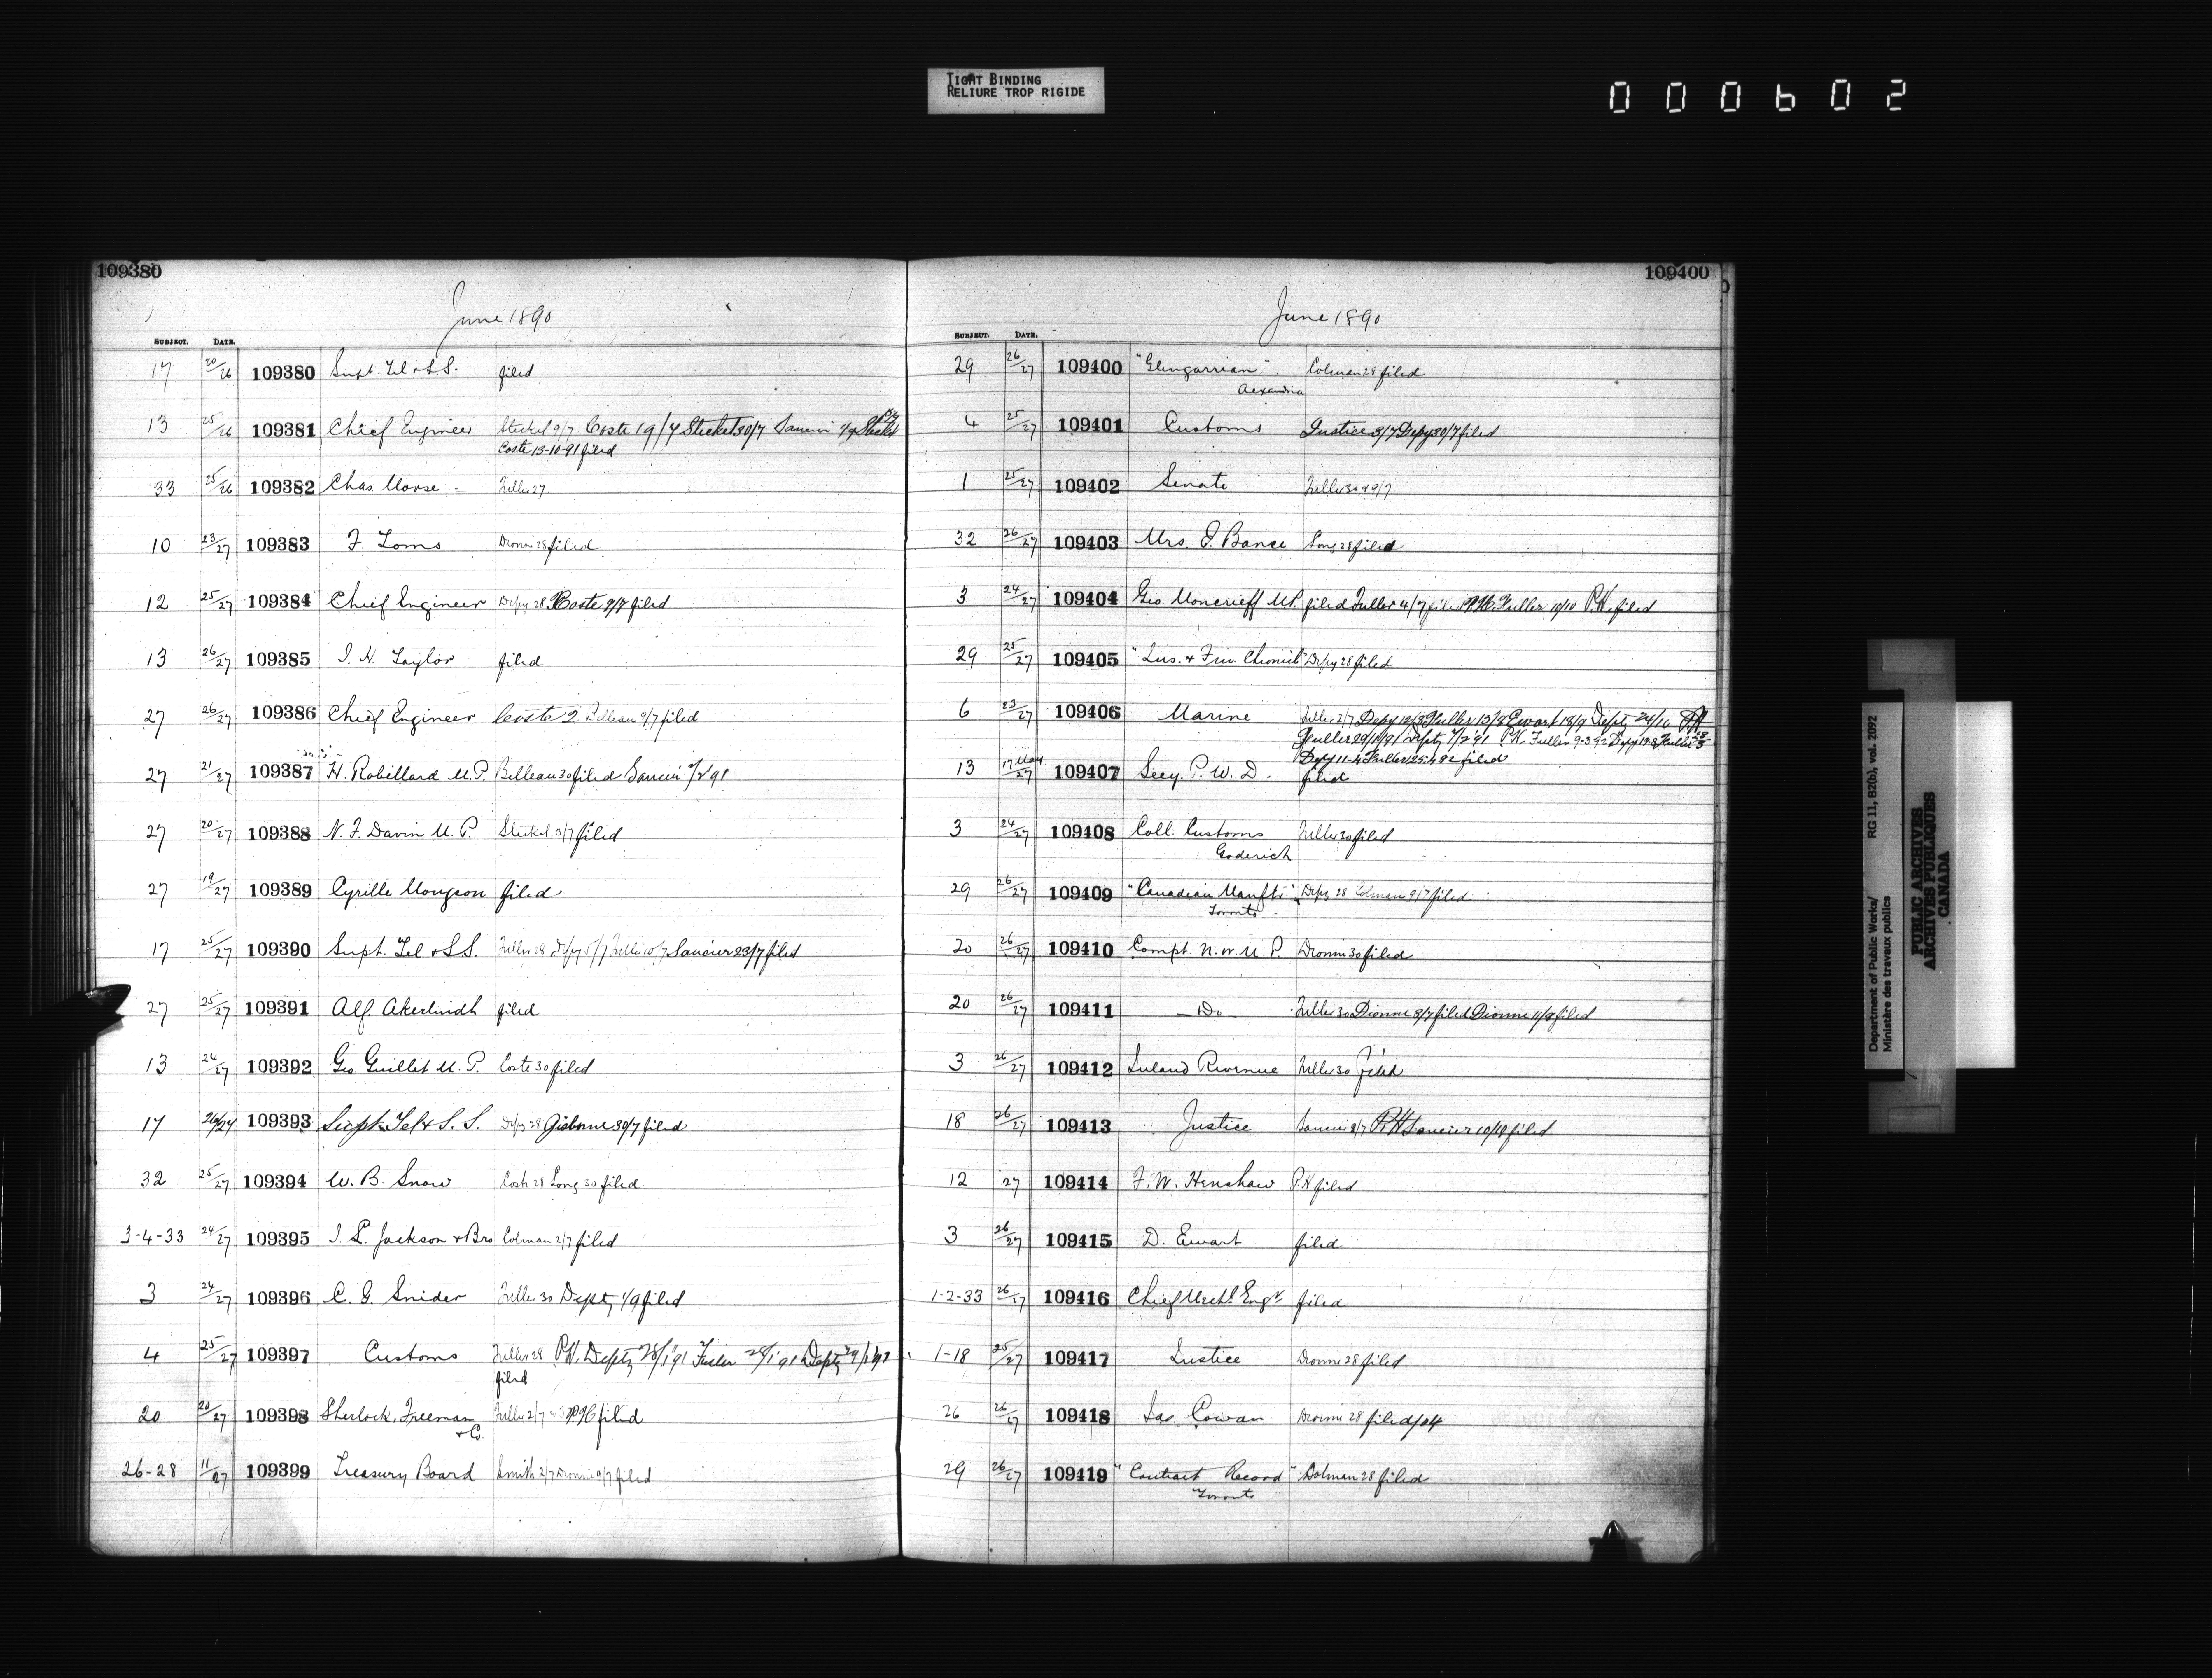 TIGHT BINDING
RELIURE TROP RIGIDE
000602
109380
June 1890
SUBJECT. DATE.
17 20/26 109380 Supt. Tel & S.S. filed
13 25/26 109381 Chief Engineer Steckel 9/7 Coste 19/7 Steckel 30/7
Coste 13-10-91 filed
33 25/26 109382 Chas. Morse - Fuller 27
10 23/27 109383 F. Toms Dionne 28 filed
12 25/27 109384 Chief Engineer Depy 28 Coste 9/7 filed
13 26/27 109385 J. H. Taylor filed
27 26/27 109386 Chief Engineer Coste 2 Belleau 9/7 filed
27 21/27 109387 H. Robillard M.P. Belleau 30 filed
27 20/27 109388 N. F. Davin M.P. Steckel 3/7 filed
27 19/27 109389 Cyrille Mongeon filed
17 25/27 109390 Supt. Tel & S.S. Fuller 28 Depy 5/7 Fuller 10/7 Saucier 23/7 filed
27 25/27 109391 Alf Akerlindh filed
13 26/27 109392 Geo Guillet M.P. Coste 30 filed
17 26/27 109393 Supt. Tel & S. S. Depy 28 Gisborne 30/7 filed
32 25/27 109394 W. B. Snow Coste 28 Long 30 filed
3-4-33 24/27 109395 Jackson & Bro Colman 2/7 filed
3 24/27 109396 C. G. Snider Fuller 30 Depty 1/9 filed
4 25/27 109397 Customs Fuller 28 P.H. Depty 28/1 '91 Fuller 28/1 91 Depty
filed
20 20/27 109398 Sherlock, Freeman Fuller 2/7 filed
& Co.
26-28 11/27 109399 Treasury Board Smith 2/7 Dionne 9/7 filed
109400
June 1890
SUBJECT. DATE.
29 26/27 109400 "Glengarrian" Colman 28 filed
Alexandria
4 25/27 109401 Customs Justice 3/7 Depy 30/7 filed
1 25/27 109402 Senate Fuller 30 & 9/7
32 26/27 109403 Mrs. Bance Long 28 filed
3 24/27 109404 Geo. Moncrieff M.P. filed Fuller 4/7 filed P.H. Fuller 10/10 P.H. filed
29 25/27 109405 "Ins. & Fin. Chronicle" Depy 28 filed
6 23/27 109406 Marine Fuller 2/7 Depy 12/8 Fuller 13/8 Ewart 18/9 Depty 24/10
Fuller 29/10/91 Depty P.H. Fuller 9-3-92
Depy 11-4 Fuller 25-4-92 filed
13 17 May/27 109407 Secy. P. W. D. filed
3 24/27 109408 Coll. Customs Fuller 30 filed
Goderich
29 26/27 109409 "Canadian Manftr." Depy 28 Colman 9/7 filed
Toronto
20 26/27 109410 Compt. N. W. M. P. Dionne 30 filed
20 26/27 109411 — Do — Fuller 30 Dionne 8/7 filed Dionne 11/8 filed
3 26/27 109412 Inland Revenue Fuller 30 filed
18 26/27 109413 Justice Saucier 2/7 P.H. Saucier 10/10 filed
12 27 109414 F. W. Henshaw P.H filed
3 26/27 109415 D. Ewart filed
1-2-33 26/27 109416 Chief Mechl. Engr. filed
1-18 25/27 109417 Justice Dionne 28 filed
26 26/27 109418 Jas. Cowan Dionne 28 filed
29 26/27 109419 "Contract Record" Colman 28 filed
Toronto
Department of Public Works/ RG 11, B2(b), vol. 2092
Ministère des travaux publics
PUBLIC ARCHIVES
ARCHIVES PUBLIQUES
CANADA